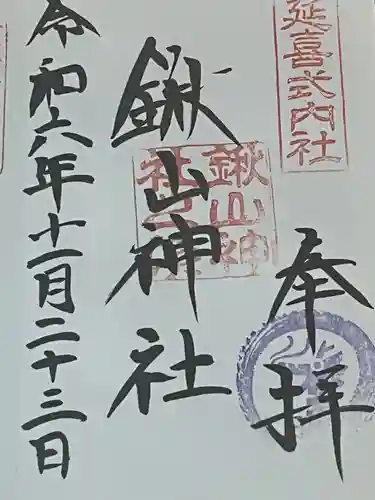 延喜式内社
奉拝
鍬山神社
鍬山神社之璽
令和六年十一月二十三日